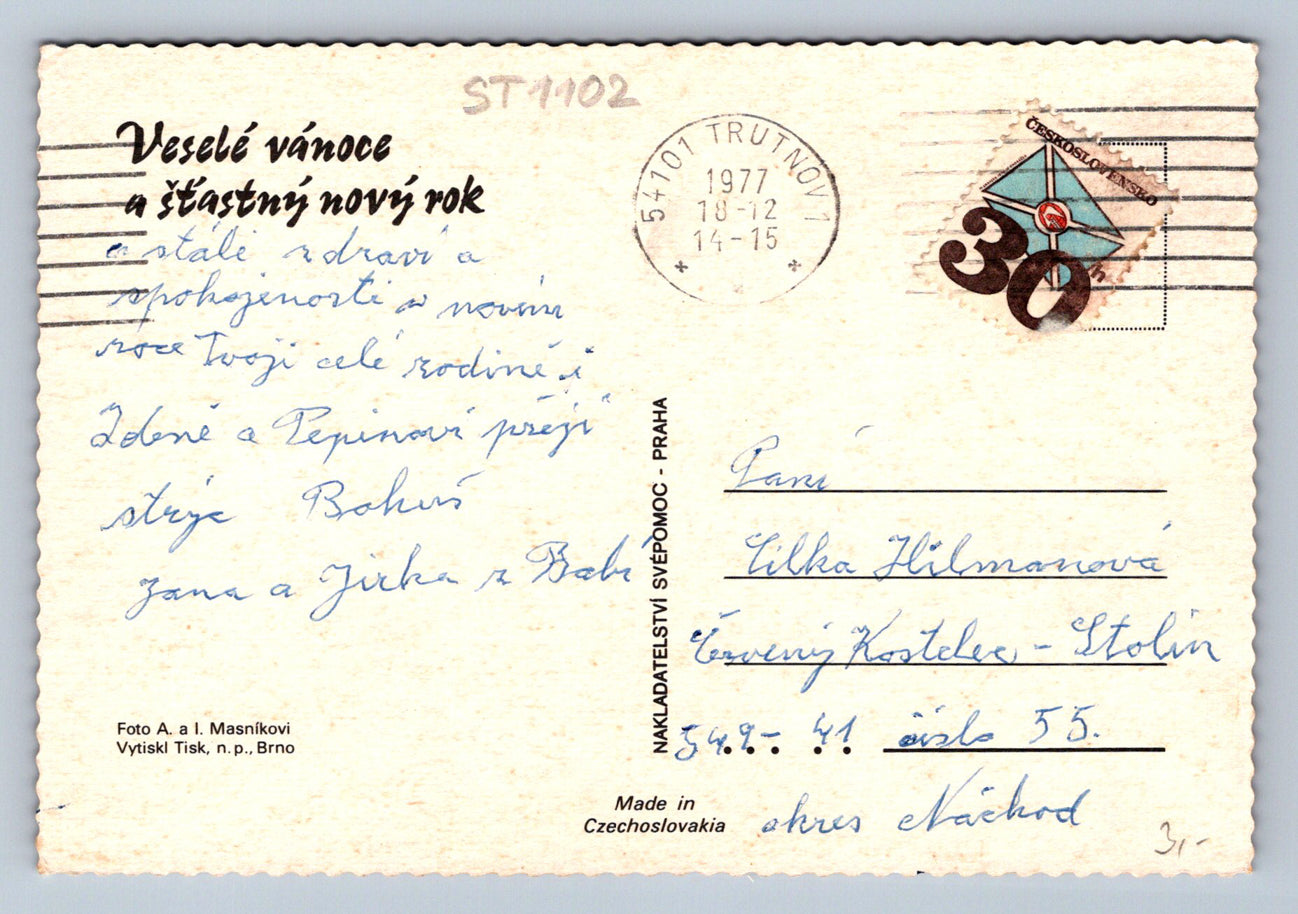 ST1102
Veselé vánoce
a šťastný nový rok
a stálé zdraví a
spokojenosti v novém
roce Tvoji celé rodině i
Zdeně a Pepinovi přejí
strýc Bohuš
Jana a Jirka z Babí
Foto A. a I. Masníkovi
Vytiskl Tisk, n. p., Brno
54101 TRUTNOV 1
1977
18-12
14-15
ČESKOSLOVENSKO
30h
NAKLADATELSTVÍ SVÉPOMOC - PRAHA
Paní
Lilka Hilmanová
Červený Kostelec - Stolín
549 - 41 číslo 55.
okres Náchod
Made in
Czechoslovakia
3,-